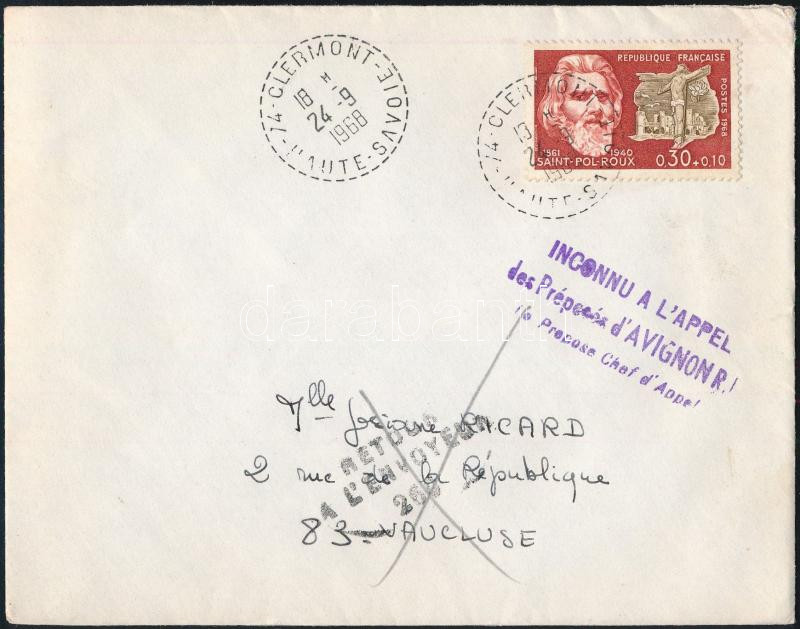 74-CLERMONT-
18 H
24-9
1968
HAUTE-SAVOIE
RÉPUBLIQUE FRANÇAISE
POSTES 1968
1861 1940
SAINT-POL-ROUX 0,30+0,10
74-CLERMONT-
INCONNU A L'APPEL
des Préposés d'AVIGNON R.
Le Prepose Chef d'Appel
darabanth
Mlle Josiane RICARD
RETOUR
A L'ENVOYEUR
2 rue de la République
83-VAUCLUSE